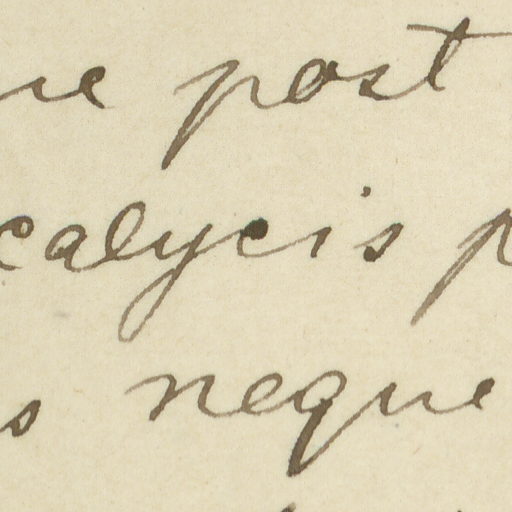 post
calycis
neque